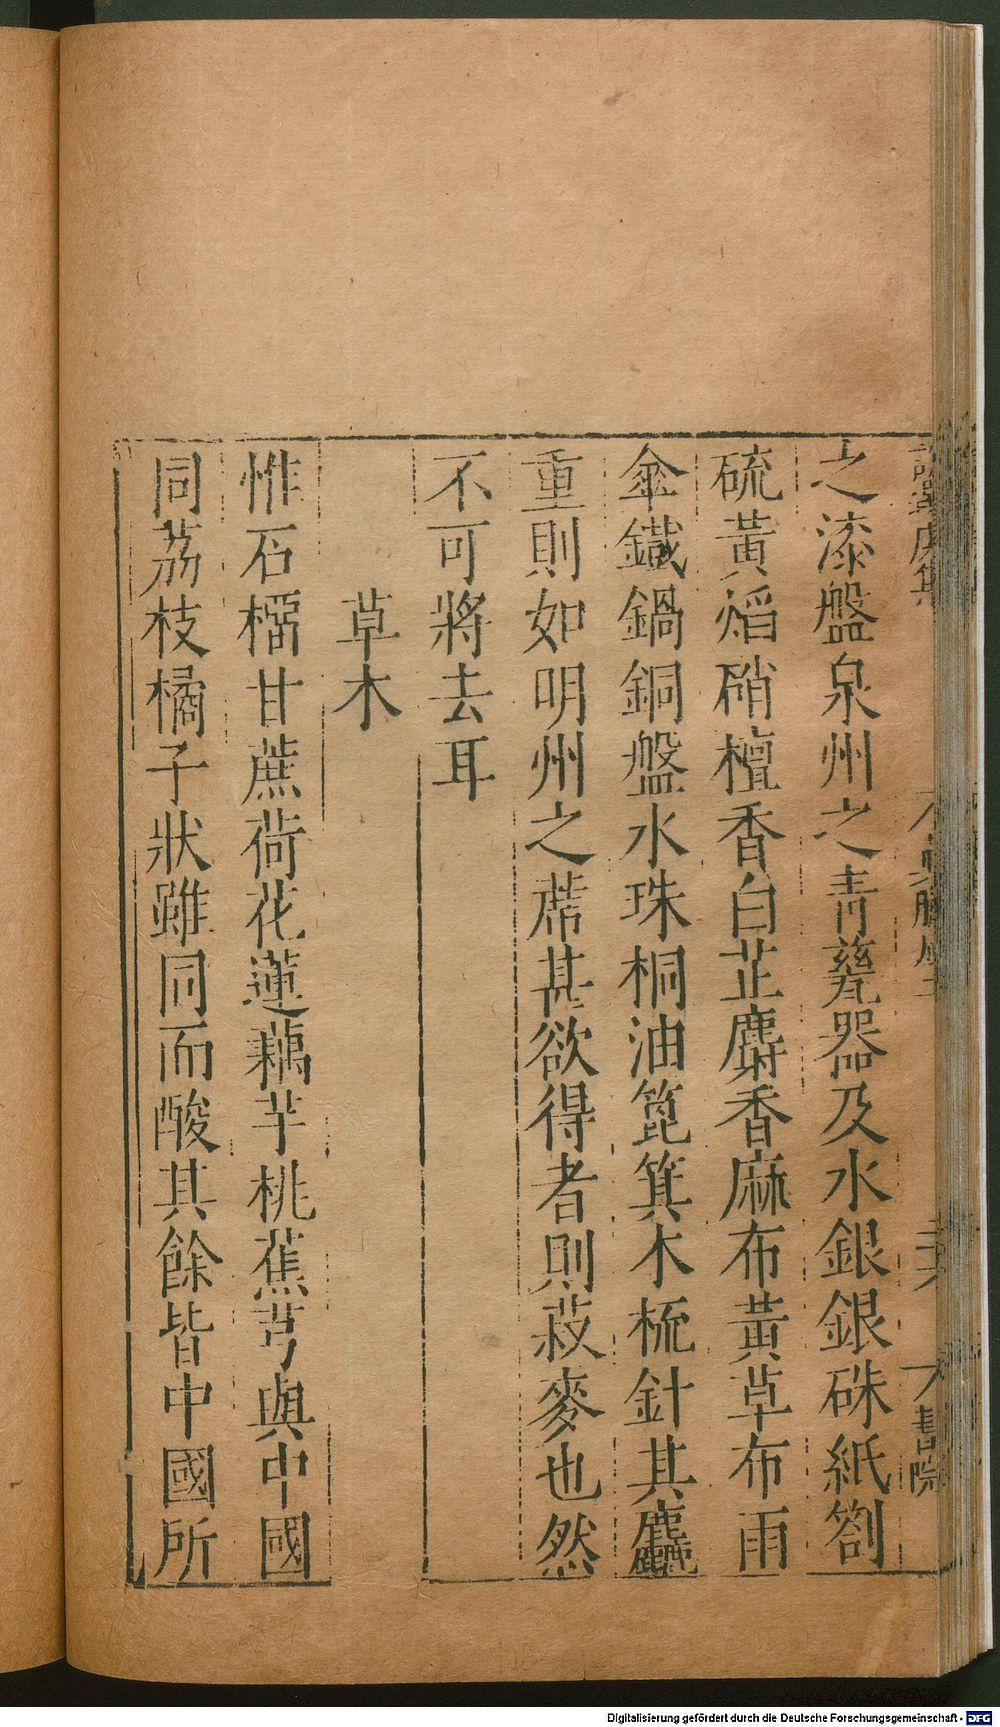 之漆盤泉州之青甆器及水銀銀硃紙劄
硫黃熖硝檀香白芷麝香麻布黃草布雨
傘鐵鍋銅盤水珠桐油篦箕木梳針其麤
重則如明州之蓆甚欲得者則菽麥也然
不可將去耳
草木
惟石榴甘蔗荷花蓮藕芋桃蕉芎與中國
同荔枝橘子狀雖同而酸其餘皆中國所
書院
Digitalisierung gefördert durch die Deutsche Forschungsgemeinschaft - DFG